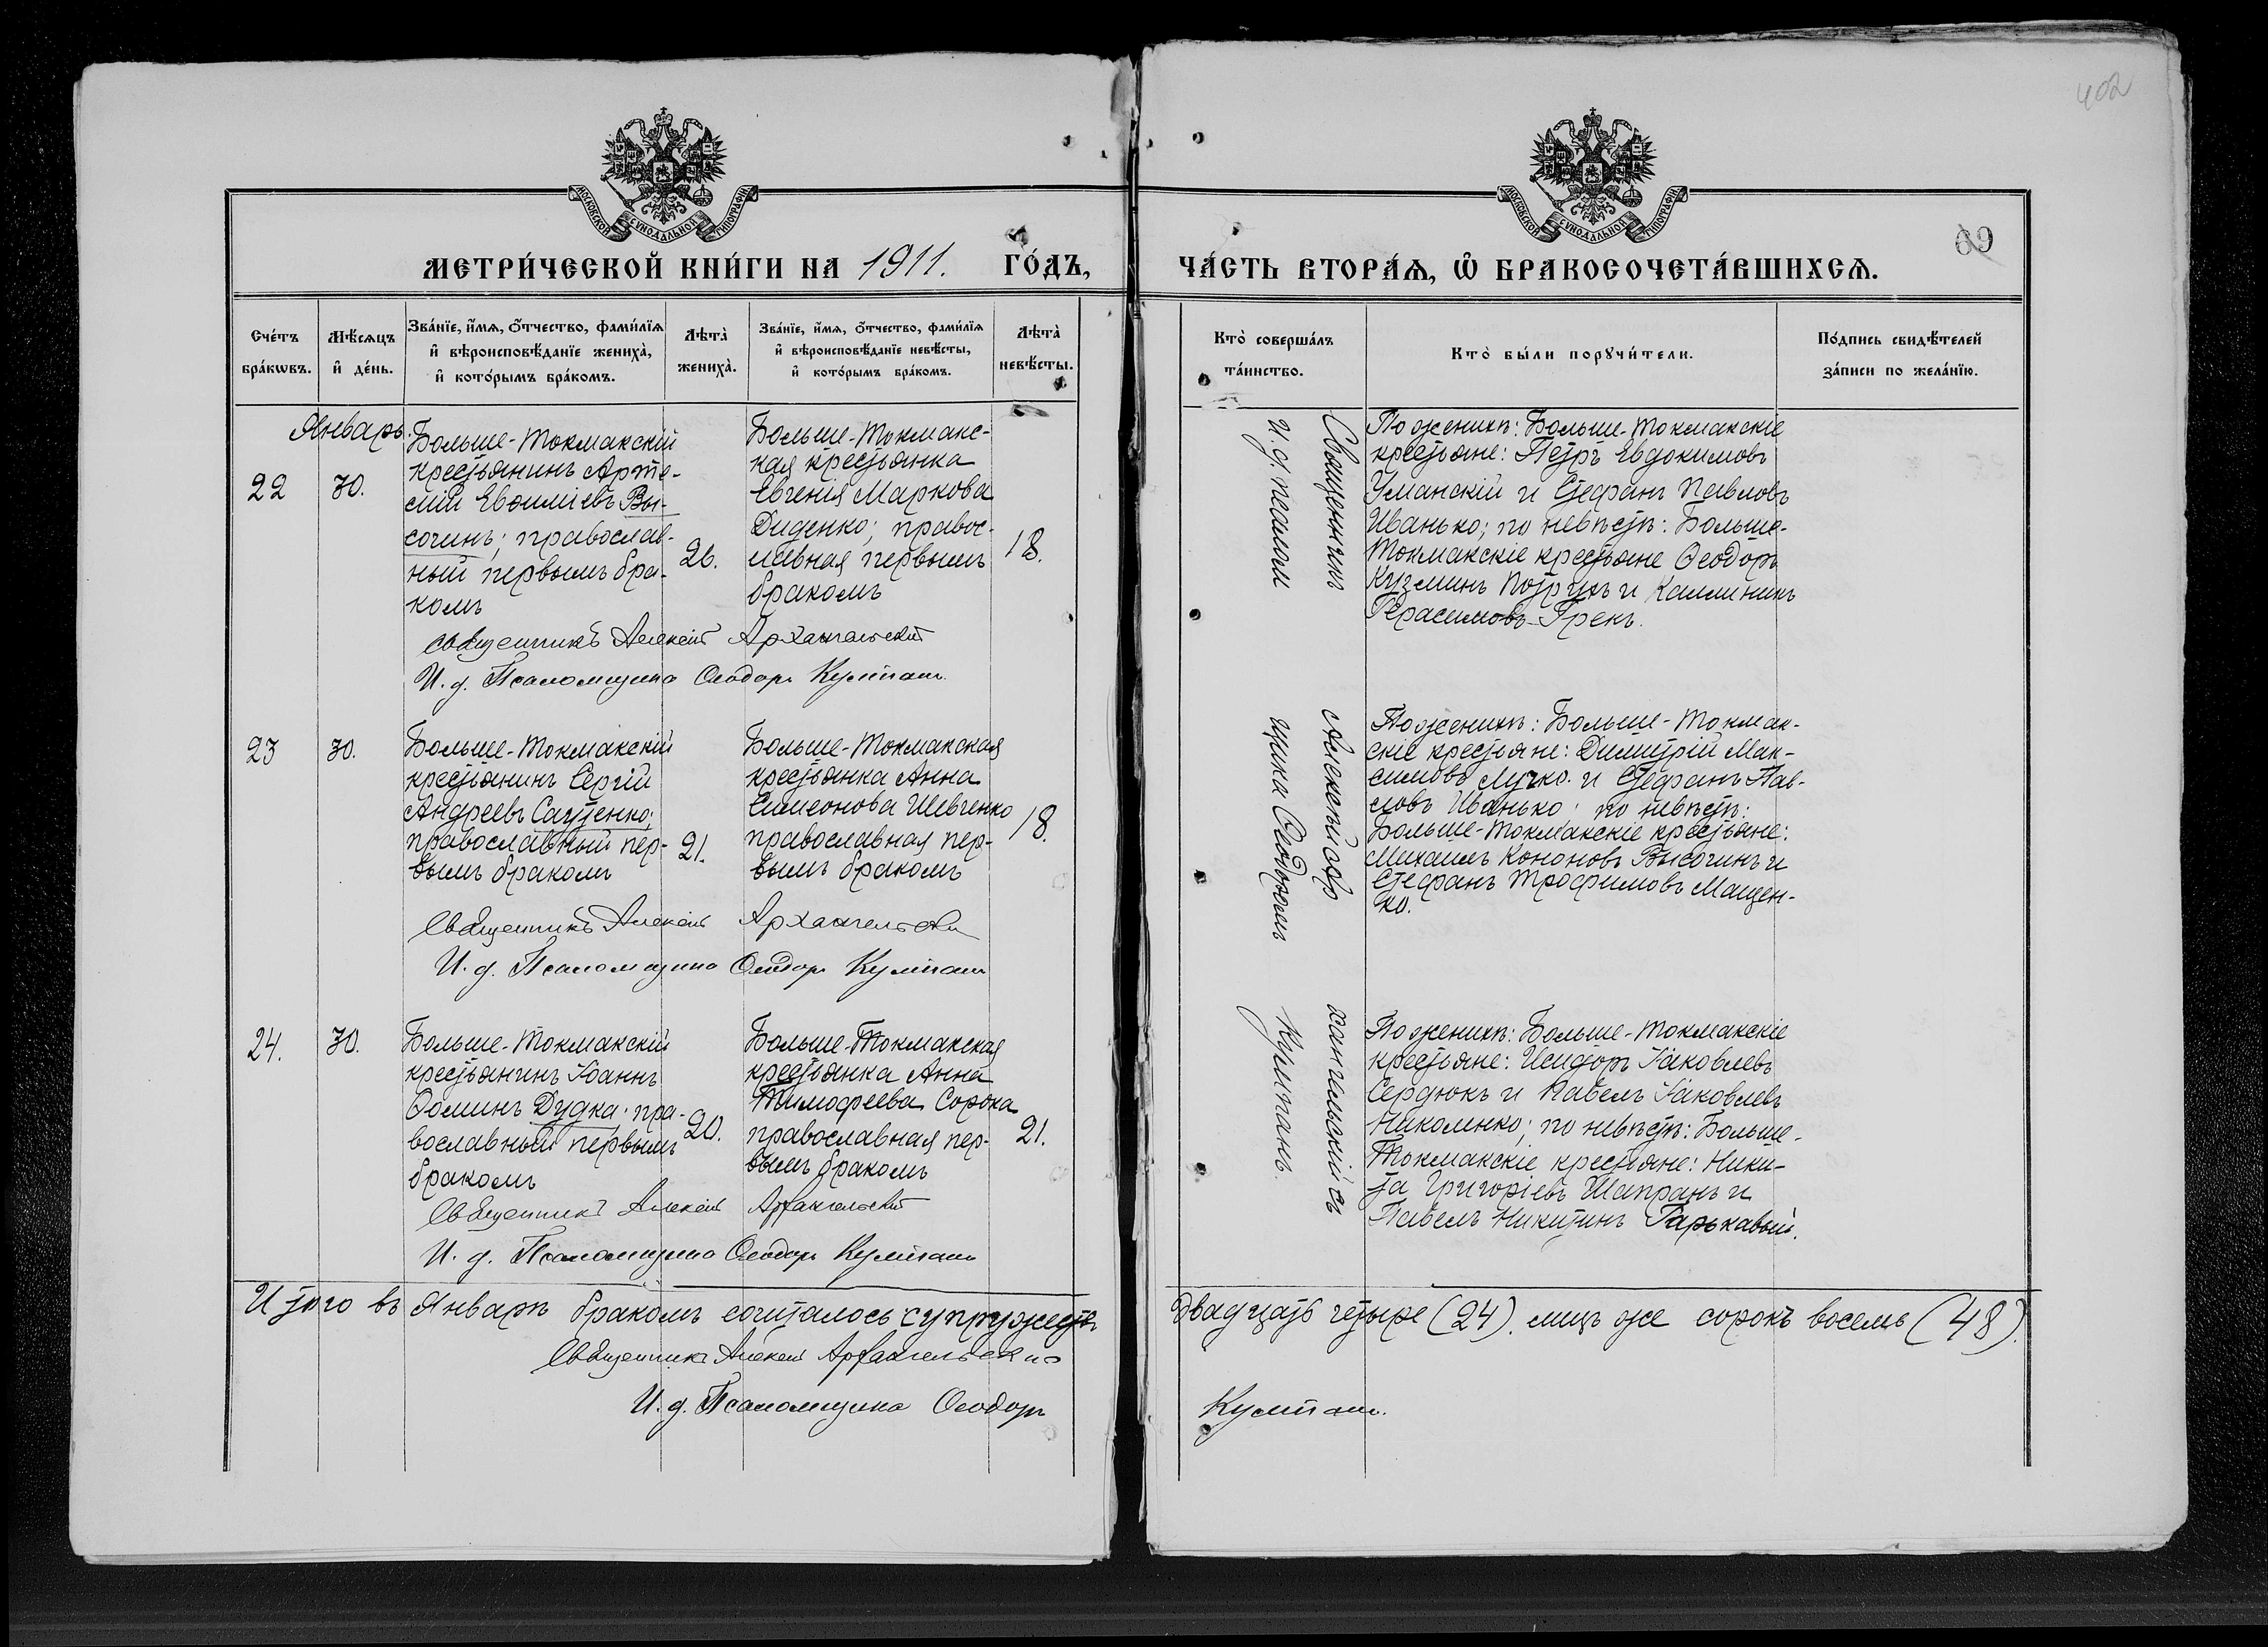 402
МОСКОВСКОЙ СѴНОДАЛЬНОЙ ТИПОГРАФІИ
МОСКОВСКОЙ СѴНОДАЛЬНОЙ ТИПОГРАФІИ
69
МЕТРИ́ЧЕСКОЙ КНИ́ГИ НА 1911. ГО́ДЪ,
ЧА́СТЬ ВТОРА́Ѧ, Ѽ БРАКОСОЧЕТА́ВШИХСѦ.
Сче́тъ
бра́кѡвъ.
Мѣ́сѧцъ
и҆ де́нь.
Зва́нїе, и҆́мѧ, ѻ҆́тчество, фами́лїѧ
и҆ вѣроисповѣ́данїе жениха̀,
и҆ кото́рымъ бра́комъ.
Лѣ́та̀
жениха̀.
Зва́нїе, и҆́мѧ, ѻ҆́тчество, фами́лїѧ
и҆ вѣроисповѣ́данїе невѣ́сты,
и҆ кото́рымъ бра́комъ.
Лѣ́та̀
невѣ́сты.
Кто̀ соверша́лъ
та́инство.
Кто̀ бы́ли порꙋчи́тели.
По́дпись свидѣ́телей
за́писи по жела́нїю.
Январь.
22
30.
Больше-Токмакскій
крестьянинъ Арте-
мій Евѳиміевъ Вы-
сочинъ; православ-
ный первымъ бра-
комъ
26.
Больше-Токмакс-
кая крестьянка
Евгенія Маркова
Диденко; правос-
лавная первымъ
бракомъ
18.
Священникъ Алексій Архангельскій
И. д. Псаломщика Ѳеодоръ
По женихѣ: Больше-Токмакскіе
крестьяне: Петръ Евдокимовъ
Уманскій и Стефанъ Павловъ
Иванько; по невѣстѣ: Больше-
Токмакскіе крестьяне Ѳеодоръ
Кузминъ и Каллиникъ
Герасимовъ Грекъ.
23
30.
Больше-Токмакскій
крестьянинъ Сергій
Андреевъ
православный пер-
вымъ бракомъ
21.
Больше-Токмакская
крестьянка Анна
Симеонова Шевченко
православная пер-
вымъ бракомъ
18.
Священникъ Алексій Архангельскій
И. д. Псаломщика Ѳеодоръ
По женихѣ: Больше-Токмак-
скіе крестьяне: Димитрій Мак-
симовъ Лучко и Стефанъ Пав-
ловъ Иванько; по невѣстѣ:
Больше-Токмакскіе крестьяне:
Михаилъ Кононовъ Высочинъ и
Стефанъ Трофимовъ Мащен-
ко.
24.
30.
Больше-Токмакскій
крестьянинъ Іоаннъ
Ѳоминъ Дудка; пра-
вославный первымъ
бракомъ
20.
Больше-Токмакская
крестьянка Анна
Тимофеева Сорока
православная пер-
вымъ бракомъ
21.
Священникъ Алексій Архангельскій
И. д. Псаломщика Ѳеодоръ
По женихѣ: Больше-Токмакскіе
крестьяне: Исидоръ Іаковлевъ
Сердюкъ и Павелъ Іаковлевъ
Николенко; по невѣстѣ: Больше-
Токмакскіе крестьяне: Ники-
та Григоріевъ Шапранъ и
Павелъ Никитинъ Гарькавый.
Священникъ Алексѣй Ар хангельскій съ
и. д. псалом щика Ѳеодоромъ
Итого въ Январѣ бракомъ сочиталось супружествъ двадцать четыре (24). лицъ же сорокъ восемь (48).
Священникъ Алексій Архангельскій
И. д. Псаломщика Ѳеодоръ